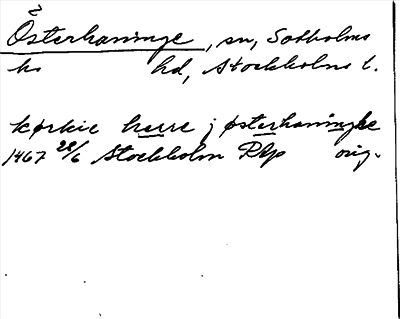 2
Österhaninge, sn, Sotholms
ks hd, Stockholms l.
kørkie herre j østerhaningke
1467 28/6 Stockholm RAp orig.